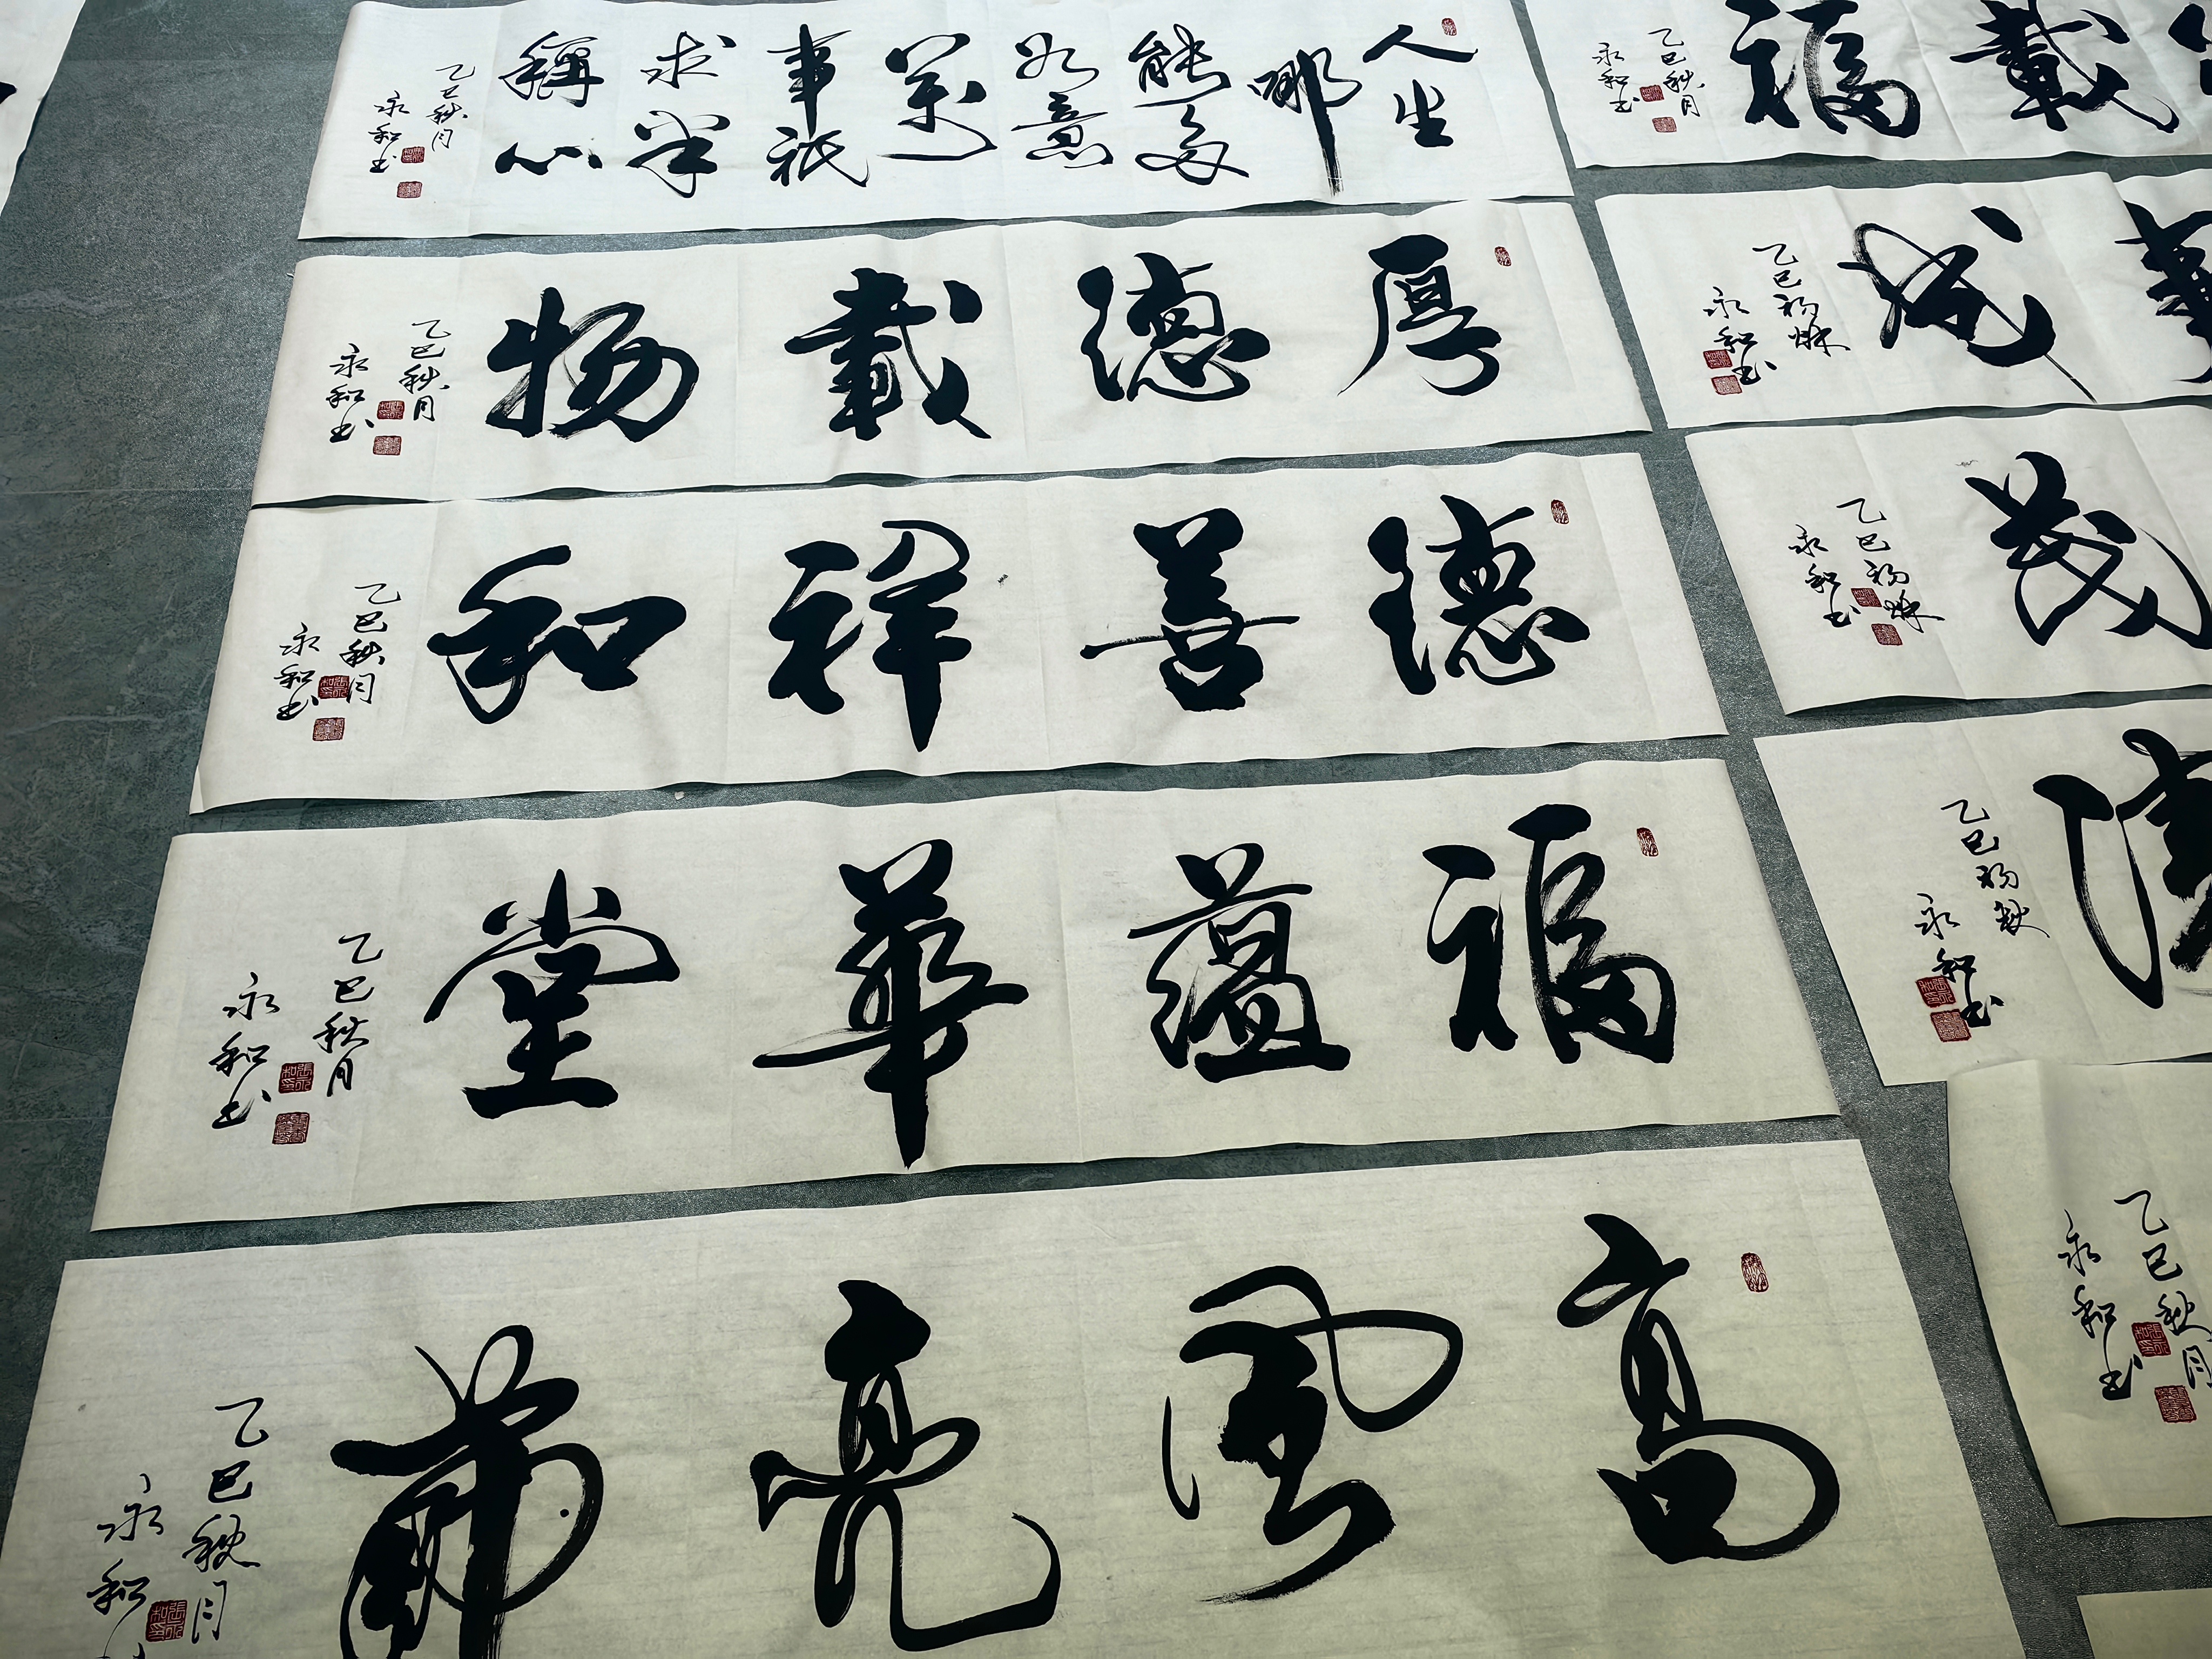 人生哪能多如意萬事祇求半稱心
乙巳秋月
永和书
厚德載物
乙巳秋月
永和书
德善祥和
乙巳秋月
永和书
福蘊華堂
乙巳秋月
永和书
高風亮節
乙巳秋月
永和
載福
乙巳秋月
永和书
事成
乙巳初秋
永和书
茂
乙巳初秋
永和书
乙巳初秋
永和书
乙巳秋月
永和书